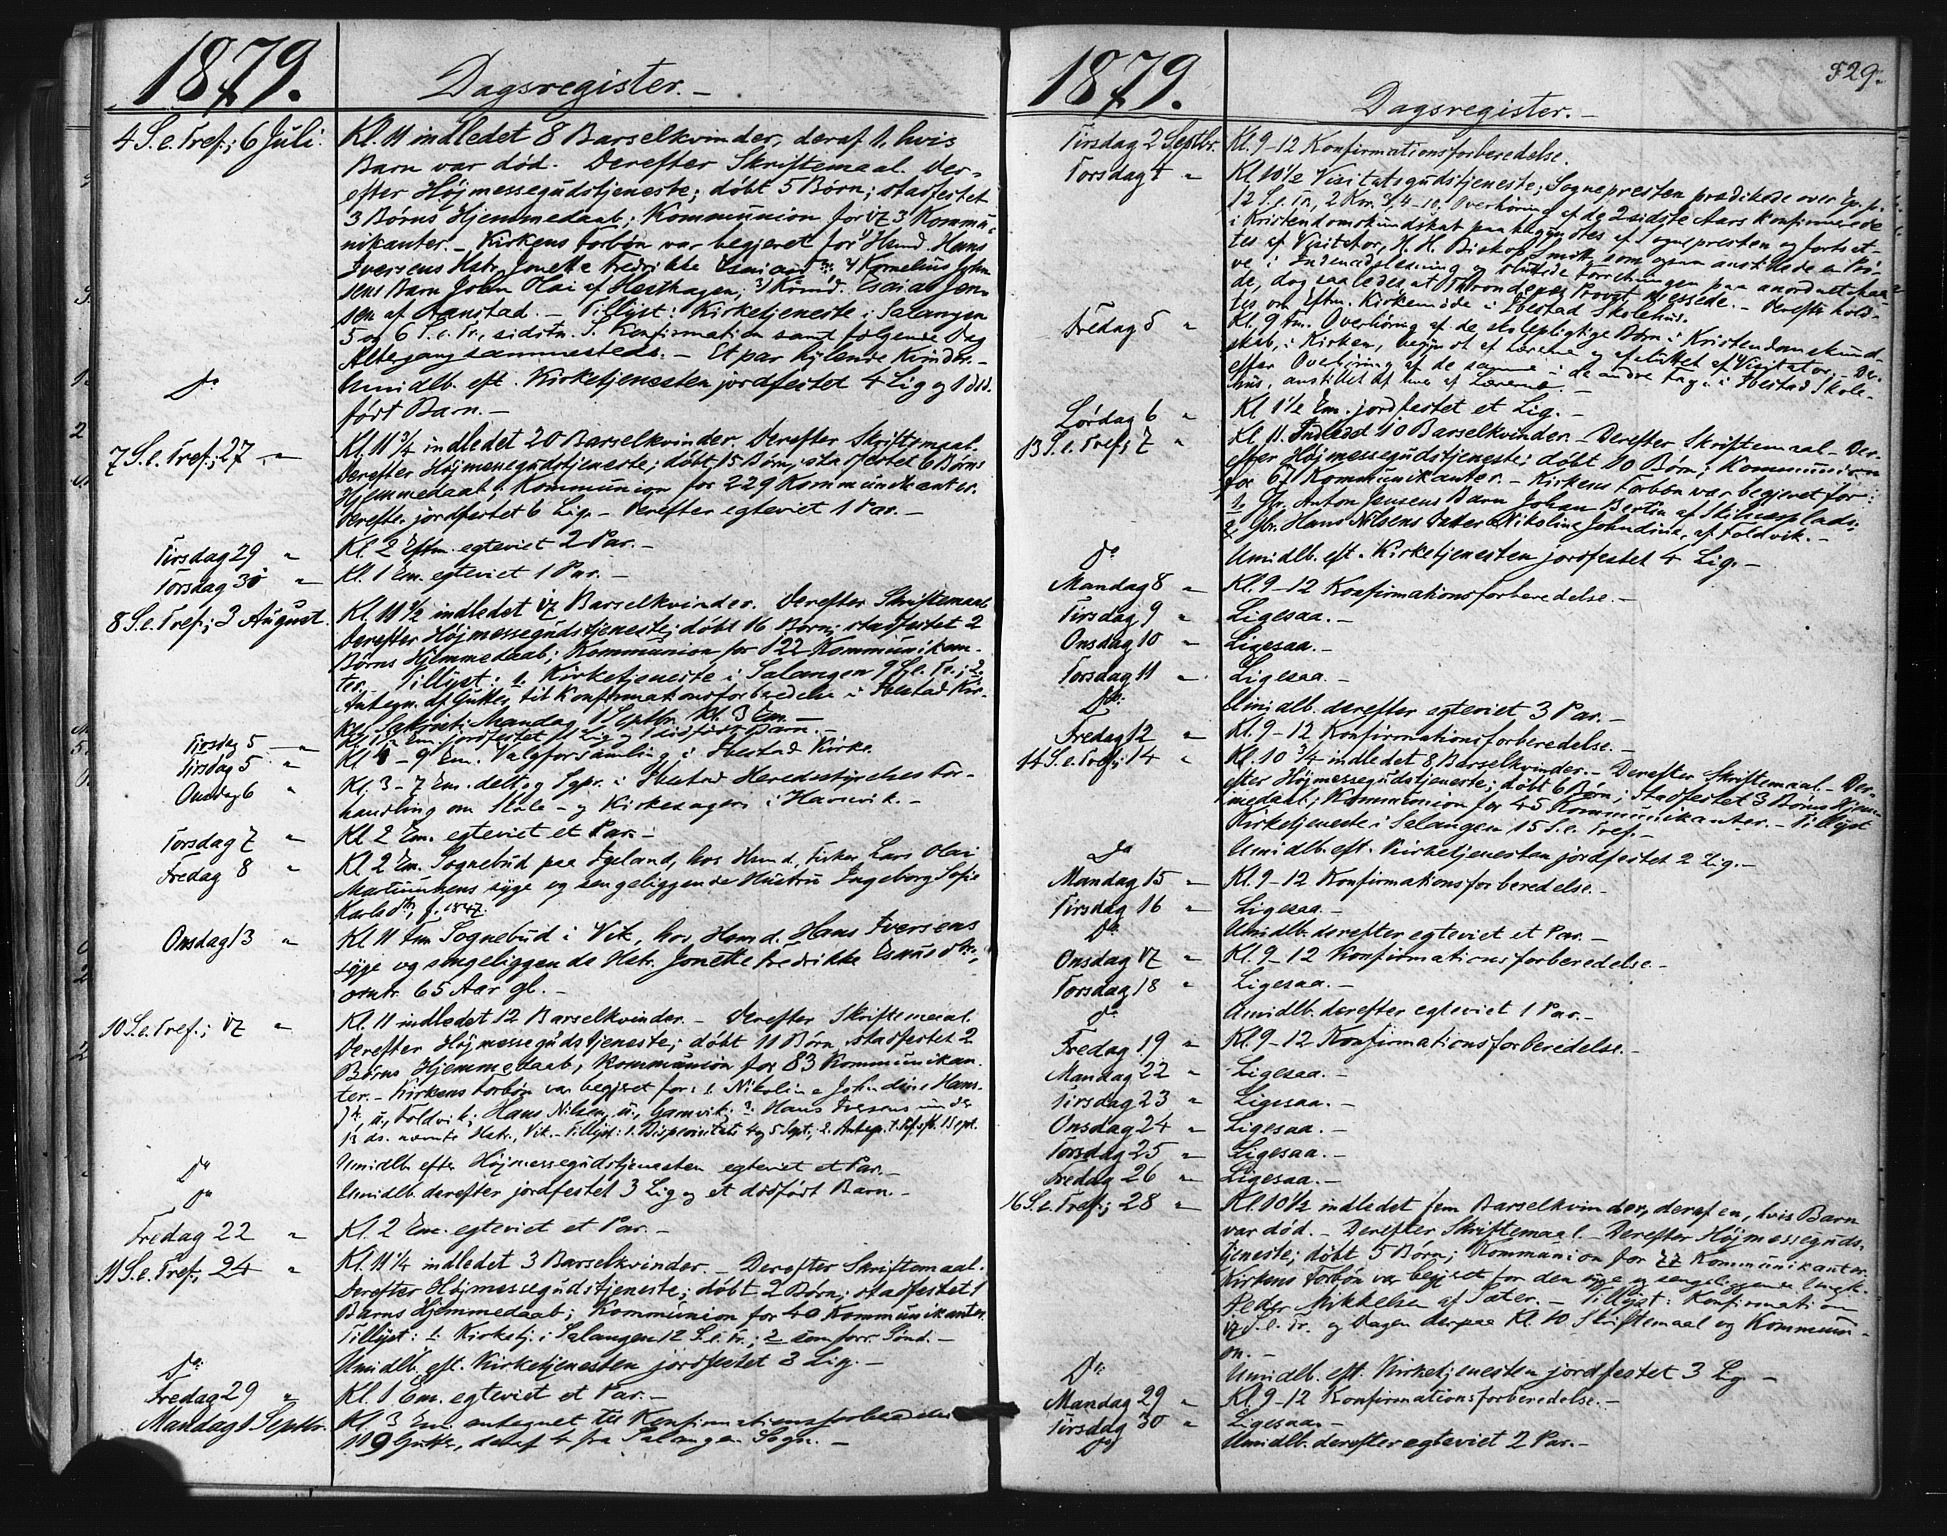 1879.
Dagsregister.—
4 S. e. Tref.; 6 Juli. Kl. 11 indledet 8 Barselkvinder, deraf 1, hvis
Barn var død. Derefter Skriftemaal. Der-
efter Højmessegudstjeneste; døbt 5 Børn; stadfestet
3 Børns Hjemmedaab; Kommunion for 173 Kommu-
nikanter.— Kirkens Forbøn var begjeret for 1) Hmd. Hans
Iversens Hstr. Jonette Fredrikke 2) Kornelius John
sens Barn Johan Olai af 3) Esaias Jen-
sen af Aanstad.— Tillyst: Kirketjeneste i Salangen
5 og 6 S. e. Tr., sidstn. S. Konfirmation samt følgende Dag
Altergang sammesteds.— Et par Kvinder.—
Do Umidlb. eft. Kirketjenesten jordfestet 4 Lig og 1 død-
født Barn.—
7 S. e. Tref.; 27 „ Kl. 11 3/4 indledet 20 Barselkvinder. Derefter Skriftemaal.
Derefter Højmessegudstjeneste; døbt 15 Børn; stadfestet 6 Børns
Hjemmedaab; Kommunion for 229 Kommunikanter.
Derefter jordfestet 6 Lig.— Derefter egteviet 1 Par.—
Tirsdag 29 „ Kl. 2 Eftm. egteviet 2 Par.—
Torsdag 30 „ Kl. 1 Em. egteviet 1 Par.—
8 S. e. Tref.; 3 August. Kl. 11 1/2 indledet 17 Barselkvinder. Derefter Skriftemaal
Derefter Højmessegudstjeneste; døbt 16 Børn; stadfestet 2
Børns Hjemmedaab; Kommunion for 122 Kommunikan-
ter. Tillyst: 1. Kirketjeneste i Salangen 9 S. e. Tr.; 2.
Antegn. af Gutter til Konfirmationsforberedelse i Ibestad Kir-
kes Sakristi Mandag 1 Septbr. Kl. 3 Em.—
Tirsdag 5 „ Kl. Em. jordfestet Lig og 1 dødfødt Barn.—
Tirsdag 5 „ Kl. – 9 Em. Valgforsamling i Ibestad Kirke.
Onsdag 6 „ Kl. 3–7 Em. deltog Sgpr. i Ibestad Heredsstyrelses For-
handling om Skole- og Kirkesager i Hamnvik.—
Torsdag 7 „ Kl. 2 Em. egteviet et Par.—
Fredag 8 „ Kl. 2 Em. Sognebud paa hos Hmd., Fisker Lars Olai
syge og sengeliggende Hustru Ingeborg Sofie
Karlsdtr., f. 1847.
Onsdag 13 „ Kl. 11 Fm. Sognebud i Vik, hos Hmd. Hans Iversens
syge og sengeliggende Hstr. Jonette Fredrikke Esaiasdtr.,
omtr. 65 Aar gl.—
10 S. e. Tref.; 17 „ Kl. 11 indledet 12 Barselkvinder.— Derefter Skriftemaal.
Derefter Højmessegudstjeneste; døbt 11 Børn, stadfestet 2
Børns Hjemmedaab, Kommunion for 83 Kommunikan-
ter.— Kirkens Forbøn var begjeret for: 1. Nikoline Johndine Hans-
dtr., Foldvik; Hans Nilsen, Gamvik; 3. Hans Iversens under
13 ds. nævnte Hstr., Vik.— Tillyst: 1. Bispevisitats 4 og 5 Sept.; 2. Antegn. 1 Sept.
Do Umidlb. efter Højmessegudstjenesten egteviet et Par.—
Do Umidlb. derefter jordfestet 3 Lig og et dødfødt Barn.—
Fredag 22 „ Kl. 2 Em. egteviet et Par.—
11 S. e. Tref.; 24 „ Kl. 11 1/4 indledet 3 Barselkvinder.— Derefter Skriftemaal.
Derefter Højmessegudstjeneste; døbt 2 Børn; stadfestet 1
Barns Hjemmedaab; Kommunion for 40 Kommunikanter.
Tillyst: 1. Kirketj. i Salangen 12 S. e. Tr.; 2 som forr. Sønd.—
Do Umidlb. eft. Kirketjenesten jordfestet 3 Lig.—
Fredag 29 „ Kl. 1 Em. egteviet et Par.—
Mandag 1 Septbr. Kl. 3 Em. antegnet til Konfirmationsforberedelse
119 Gutter, deraf 4 fra Salangen Sogn.—
1879.
529.
Dagsregister.—
Tirsdag 2 Septbr. Kl. 9–12 Konfirmationsforberedelse.
Torsdag 4 „ Kl. 10 1/2 Visitatsgudstjeneste; Sognepresten prædikede over Ep. p.
12 S. e. Tr., 2 Kor. 3, 4–10. Overhøring af de 2 sidste Aars konfirmerede
i Kristendomskundskab paabegyndtes af Sognepresten og fortsat-
tes af Visitator, H. H. Biskop Smitt, som ogsaa anstillede
ve i Indenadslæsning og sluttede Forretningen paa anordnet Maa-
de, dog saaledes at Provst messede.— Derefter hold-
tes om Eftm. Kirkemøde i Ibestad Skolehus.
Fredag 5 „ Kl. 9 Fm. Overhøring af de skolepligtige Børn i Kristendomskund-
skab, i Kirken, begyndt af Lærerne og afsluttet af Visitator.— Der-
efter Overhøring af de samme i de andre Fag i Ibestad Skole-
hus, anstillet af hver af Lærerne.—
Lørdag 6 „ Kl. 1 1/2 Em. jordfestet et Lig.—
13 S. e. Tref.; 7 „ Kl. 11. Indledet 10 Barselkvinder.— Derefter Skriftemaal.— Der-
efter Højmessegudstjeneste; døbt 10 Børn; Kommunion
for 67 Kommunikanter.— Kirkens Forbøn var begjeret for:
1, Anton Jensens Barn Johan Bertin af
2, Gbr. Hans Nilsens Datter Nikoline Johndine, af Foldvik.—
Do Umidlb. eft. Kirketjenesten jordfestet 4 Lig.—
Mandag 8 „ Kl. 9–12 Konfirmationsforberedelse.—
Tirsdag 9 „ Ligesaa.—
Onsdag 10 „ Ligesaa.—
Torsdag 11 „ Ligesaa.—
Do Umidlb. derefter egteviet 3 Par.—
Fredag 12 „ Kl. 9–12 Konfirmationsforberedelse.—
14 S. e. Tref.; 14 „ Kl. 10 3/4 indledet 8 Barselkvinder.— Derefter Skriftemaal.— Der-
efter Højmessegudstjeneste; døbt 6 Børn; stadfestet 3 Børns Hjem-
medaab; Kommunion for 45 Kommunikanter.— Tillyst
Kirketjeneste i Salangen 15 S. e. Tref.—
Do Umidlb. eft. Kirketjenesten jordfestet 2 Lig.—
Mandag 15 „ Kl. 9–12 Konfirmationsforberedelse.—
Tirsdag 16 „ Ligesaa.—
Do Umidlb. derefter egteviet et Par.—
Onsdag 17 „ Kl. 9–12 Konfirmationsforberedelse.—
Torsdag 18 „ Ligesaa.—
Do Umidlb. derefter egteviet 1 Par.—
Fredag 19 „ Kl. 9–12 Konfirmationsforberedelse.—
Mandag 22 „ Ligesaa.—
Tirsdag 23 „ Ligesaa.—
Onsdag 24 „ Ligesaa.—
Torsdag 25 „ Ligesaa.—
Fredag 26 „ Ligesaa.—
16 S. e. Tref.; 28 „ Kl. 10 1/2 indledet fem Barselkvinder, deraf en, hvis Barn
var død.— Derefter Skriftemaal.— Derefter Højmesseguds-
tjeneste; døbt 5 Børn; Kommunion for 77 Kommunikanter.
Kirkens Forbøn var begjeret for den syge og sengeliggende Ungk.
Peder Mikkelsen af Sæter.— Tillyst: Konfirmation
17 S. e. Tr. og Dagen derpaa Kl. 10 Skriftemaal og Kommuni-
on.—
Do Umidlb. eft. Kirketjenesten jordfestet 3 Lig.—
Mandag 29 „ Kl. 9–12 Konfirmationsforberedelse.—
Tirsdag 30 „ Ligesaa.—
Do Umidlb. derefter egteviet 2 Par.—